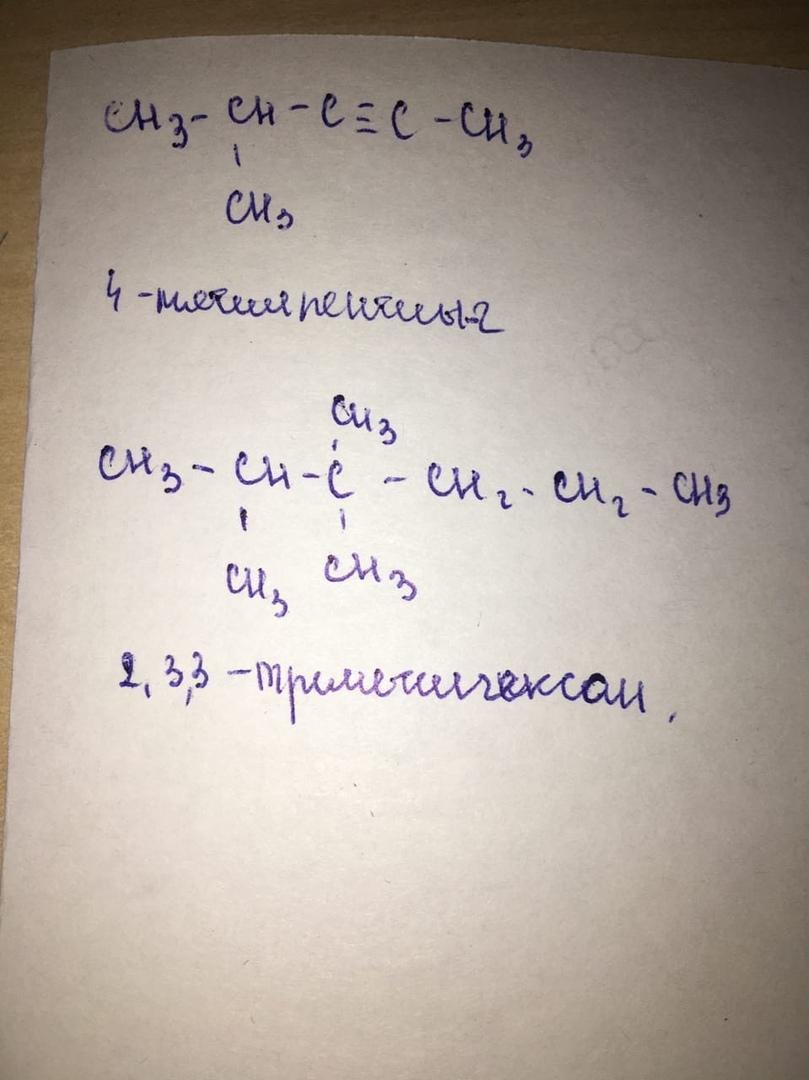 CH3- CH - C ≡ C - CH3
CH3
4 -метилпентин-2
CH3
CH3 - CH - C - CH2 - CH2 - CH3
CH3 CH3
2,3,3 -триметилгексан,